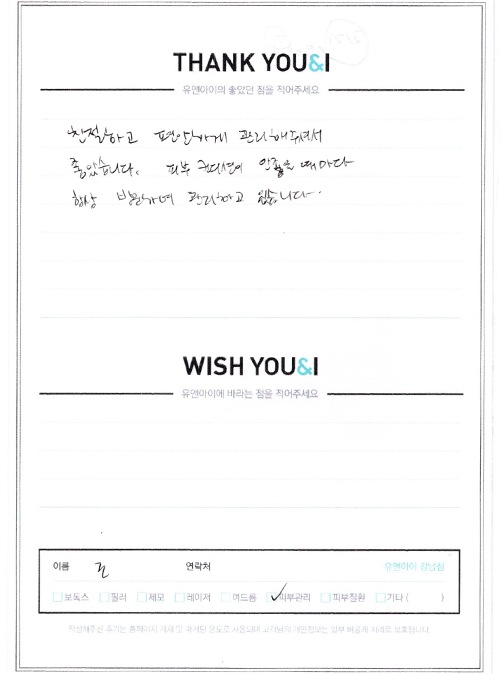 THANK YOU&I
유앤아이의 좋았던 점을 적어주세요
친절하고 편안하게 관리해주셔서
좋았습니다. 피부 컨디션이 안좋을 때마다
항상 방문하여 관리하고 있습니다.
WISH YOU&I
유앤아이에 바라는 점을 적어주세요
이름 연락처 유앤아이 강남점
보톡스 필러 제모 레이저 여드름 피부관리 피부질환 기타 ( )
작성해주신 후기는 홈페이지 게재 및 마케팅 용도로 사용되며 고객님의 개인정보는 일부 비공개 처리로 보호됩니다.